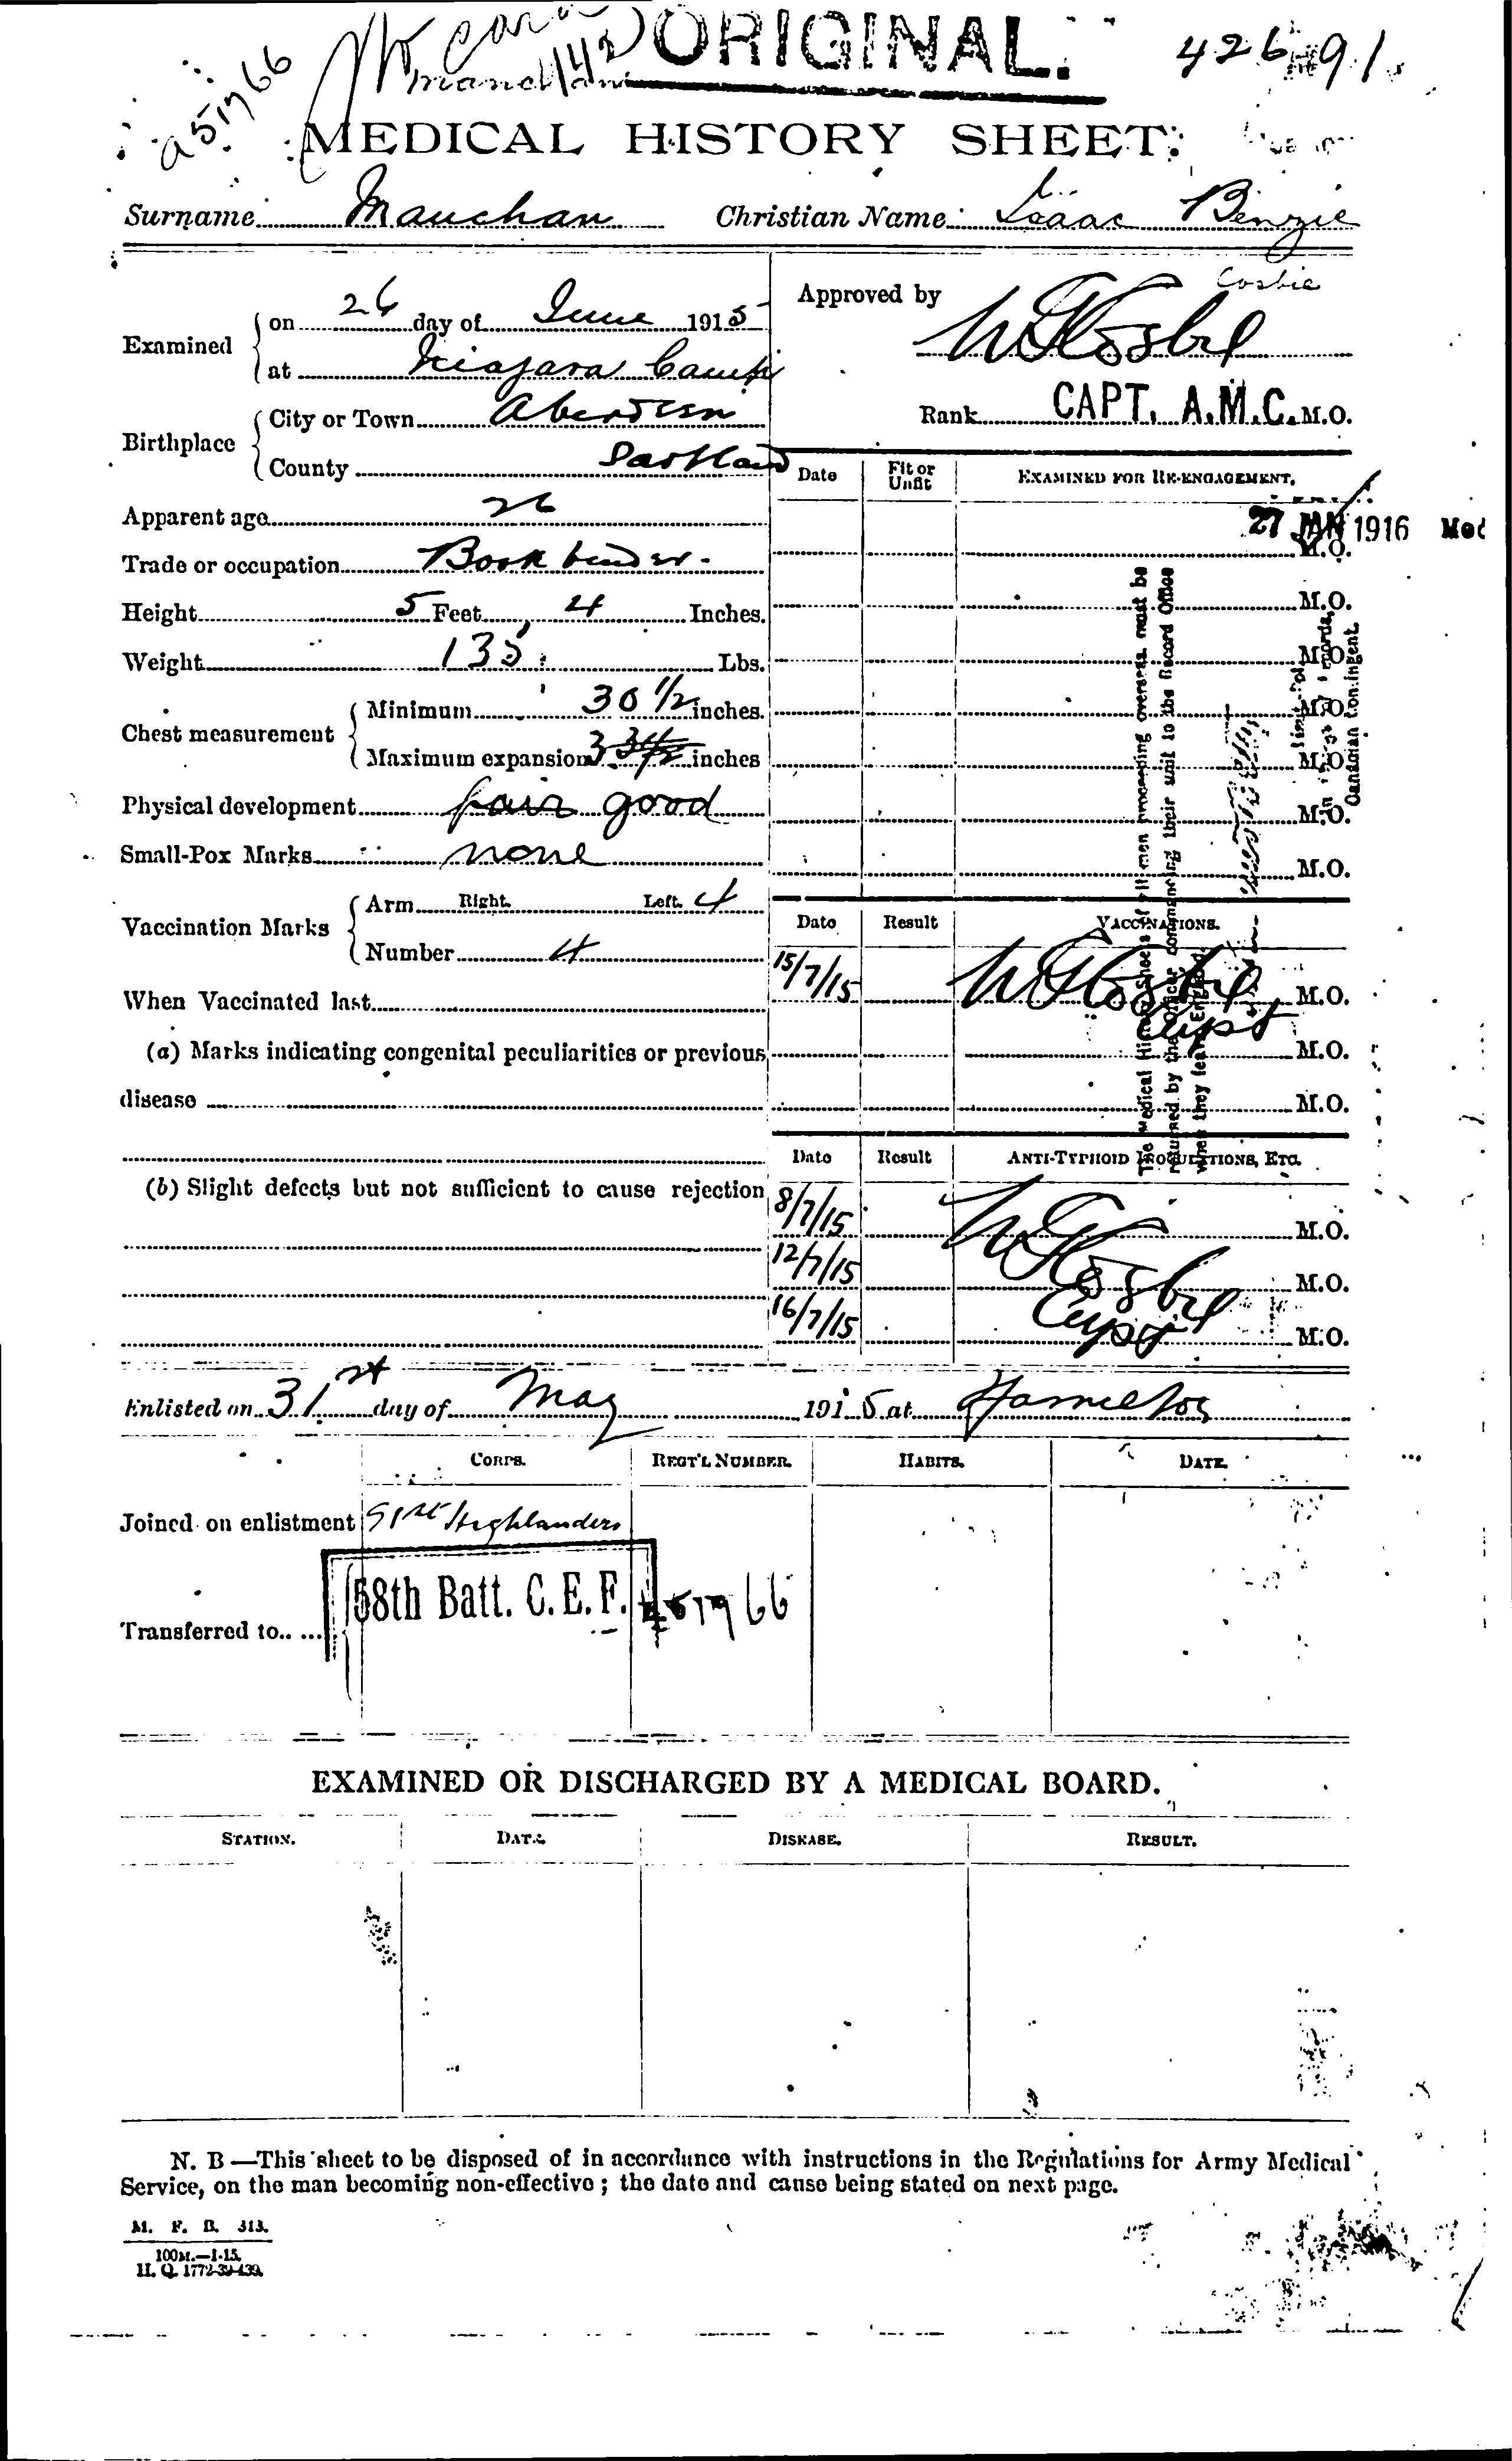 ORIGINAL.
a51766
MEDICAL HISTORY SHEET.
Surname Mauchan Christian Name Isaac Benzie
Examined on 26 day of June 1915
at Niagara Camp
Approved by
Cosbie
Rank CAPT. A.M.C. M.O.
Birthplace City or Town Aberdeen
County Scotland
Apparent age 26
Trade or occupation Book binder.
Height 5 Feet 4 Inches.
Weight 135 Lbs.
Chest measurement Minimum 30 1/2 inches.
Maximum expansion 3 inches
Physical development fair good
Small-Pox Marks none
Vaccination Marks Arm Right. Left. 4
Number 4
When Vaccinated last
(a) Marks indicating congenital peculiarities or previous
disease
(b) Slight defects but not sufficient to cause rejection
Date Fit or Unfit EXAMINED FOR RE-ENGAGEMENT.
27 JAN 1916 Med
M.O.
M.O.
M.O.
M.O.
M.O.
M.O.
M.O.
The Medical History Sheets of all men proceeding overseas must be
returned by the Officer commanding their unit to the Record Office
when they leave England.
Canadian Contingent.
Date Result VACCINATIONS.
15/7/15 M.O.
Capt
M.O.
M.O.
Date Result ANTI-TYPHOID INOCULATIONS, ETC.
8/7/15 M.O.
12/7/15 M.O.
16/7/15 Capt M.O.
Enlisted on 31st day of May 1915 at Hamilton
CORPS. REGT'L NUMBER. HABITS. DATE.
Joined on enlistment 91st Highlanders
Transferred to 58th Batt. C.E.F. 451766
EXAMINED OR DISCHARGED BY A MEDICAL BOARD.
STATION. DATE. DISEASE. RESULT.
N. B—This sheet to be disposed of in accordance with instructions in the Regulations for Army Medical
Service, on the man becoming non-effective; the date and cause being stated on next page.
M. F. B. 313.
100M.—1-15.
H. Q. 1772-39-439.